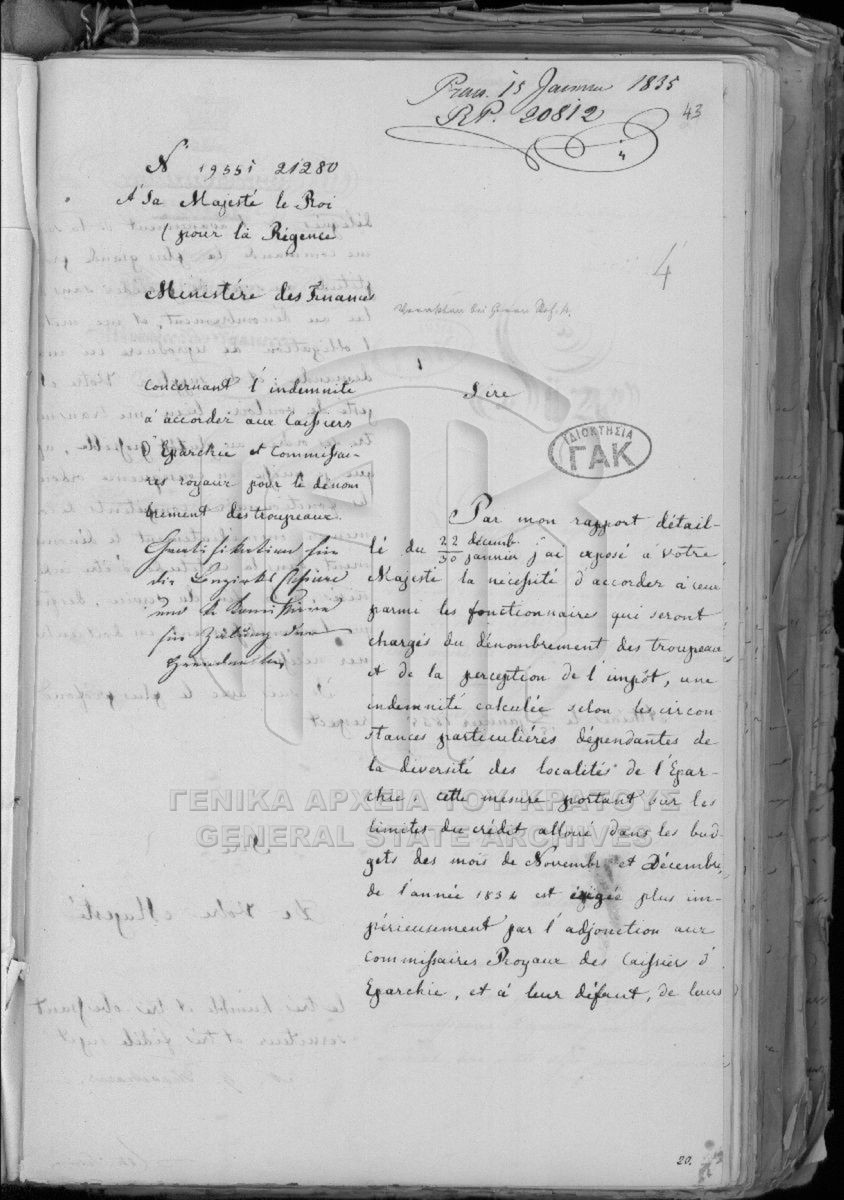 15 Janvier 1835
RP. 20812
43
N° 19551 21280
A Sa Majesté le Roi
(pour la Régence
4
Ministére des Finances
bei Herrn
Concernant l'indemnité
à accorder aux Caissiers
d'Eparchie et Commissai-
res royaux pour le dénom
brement des troupeaux.
für
die
und
für Zählung der
Sire
ΙΔΙΟΚΤΗΣΙΑ
ΓΑΚ
Par mon rapport détail-
lé du 22 décemb. / 30 janvier j'ai exposé à Votre
Majesté la necessité d'accorder à ceux
parmi les fonctionnaire qui seront
chargés du dénombrement des troupeaux
et de la perception de l'impôt, une
indemnité calculée selon les circon
stances particuliéres dépendantes de
la diversité des localités de l'Epar-
chie. cette mesure portant sur les
limites du crédit alloué dans les bud-
gets des mois de Novembr. et Décembre,
de l'année 1834 est exigée plus im-
périeusement par l'adjonction aux
Commissaires Royaux des Caissier d'
Eparchie, et à leur défaut, de leurs
ΓΕΝΙΚΑ ΑΡΧΕΙΑ ΤΟΥ ΚΡΑΤΟΥΣ
GENERAL STATE ARCHIVES
20.